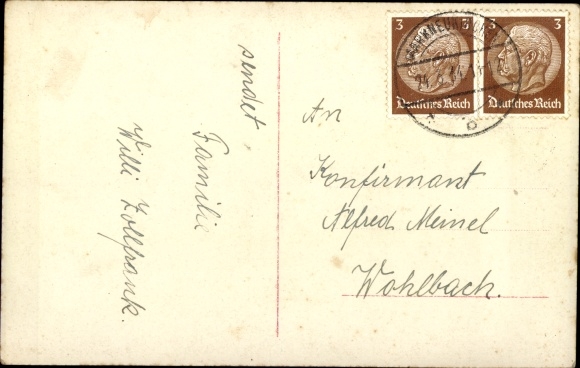 sendet,
Familie
Willi Zollfrank.
3 3
Deutsches Reich Deutsches Reich
An
Konfirmant
Alfred Meinel
Wohlbach.